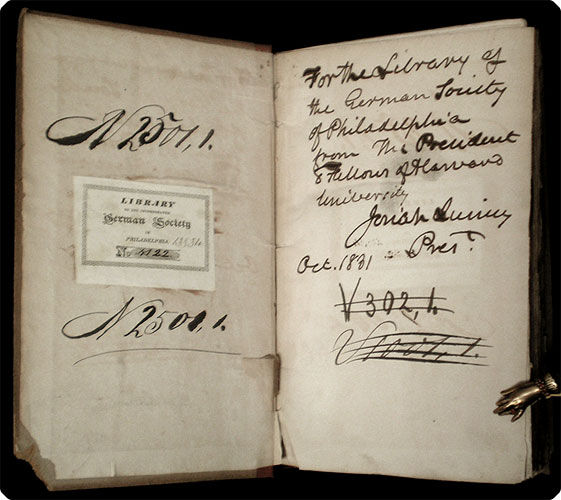 N 2501,1.
LIBRARY
OF THE INCORPORATED
German Society
OF
PHILADELPHIA
No. 4122
N 2501,1.
For the Library of
the German Society
of Philadelphia
from The President
& Fellows of Harvard
University
Josiah Quincy
Prest.
Oct. 1831
V 302,1.